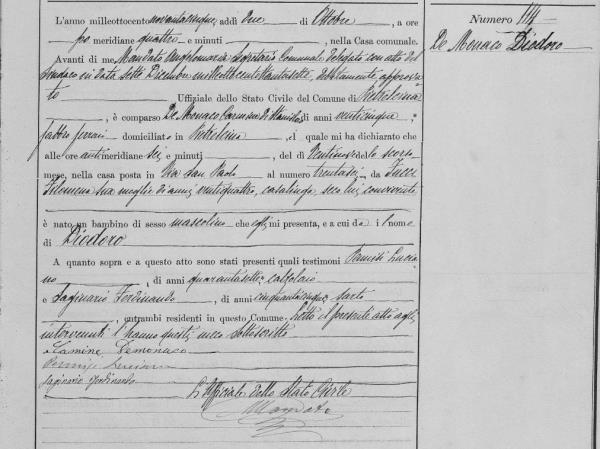 L'anno milleottocento novantacinque, addì Due di Ottobre, a ore
pomeridiane quattro e minuti, nella Casa comunale.
Avanti di me Mandato Segretario Comunale delegato con atto del
Sindaco in data sette Dicembre milleottocento ottantasette, debitamente approva
to Uffiziale dello Stato Civile del Comune di
è comparso De Monaco Carmine di di anni venticinque,
fabbro ferraio domiciliato in, il quale mi ha dichiarato che
alle ore antimeridiane sei e minuti, del dì ventinove dello scorso
mese, nella casa posta in Via San Paolo al numero trentasei, da Tucci
Filomena sua moglie di anni ventiquattro, casalinga, seco lui convivente
è nato un bambino di sesso mascolino che egli mi presenta, e a cui dà il nome
di Diodoro
A quanto sopra e a questo atto sono stati presenti quali testimoni Lucia
no, di anni quarantasette, calzolaio
e Saginario Ferdinando, di anni cinquantacinque, sarto
, entrambi residenti in questo Comune. Letto il presente atto agli
intervenuti l'hanno questi meco sottoscritto
Carmine Demonaco
Luciano
Saginario Ferdinando
L'Uffiziale dello Stato Civile
Mandato
Numero 114
De Monaco Diodoro